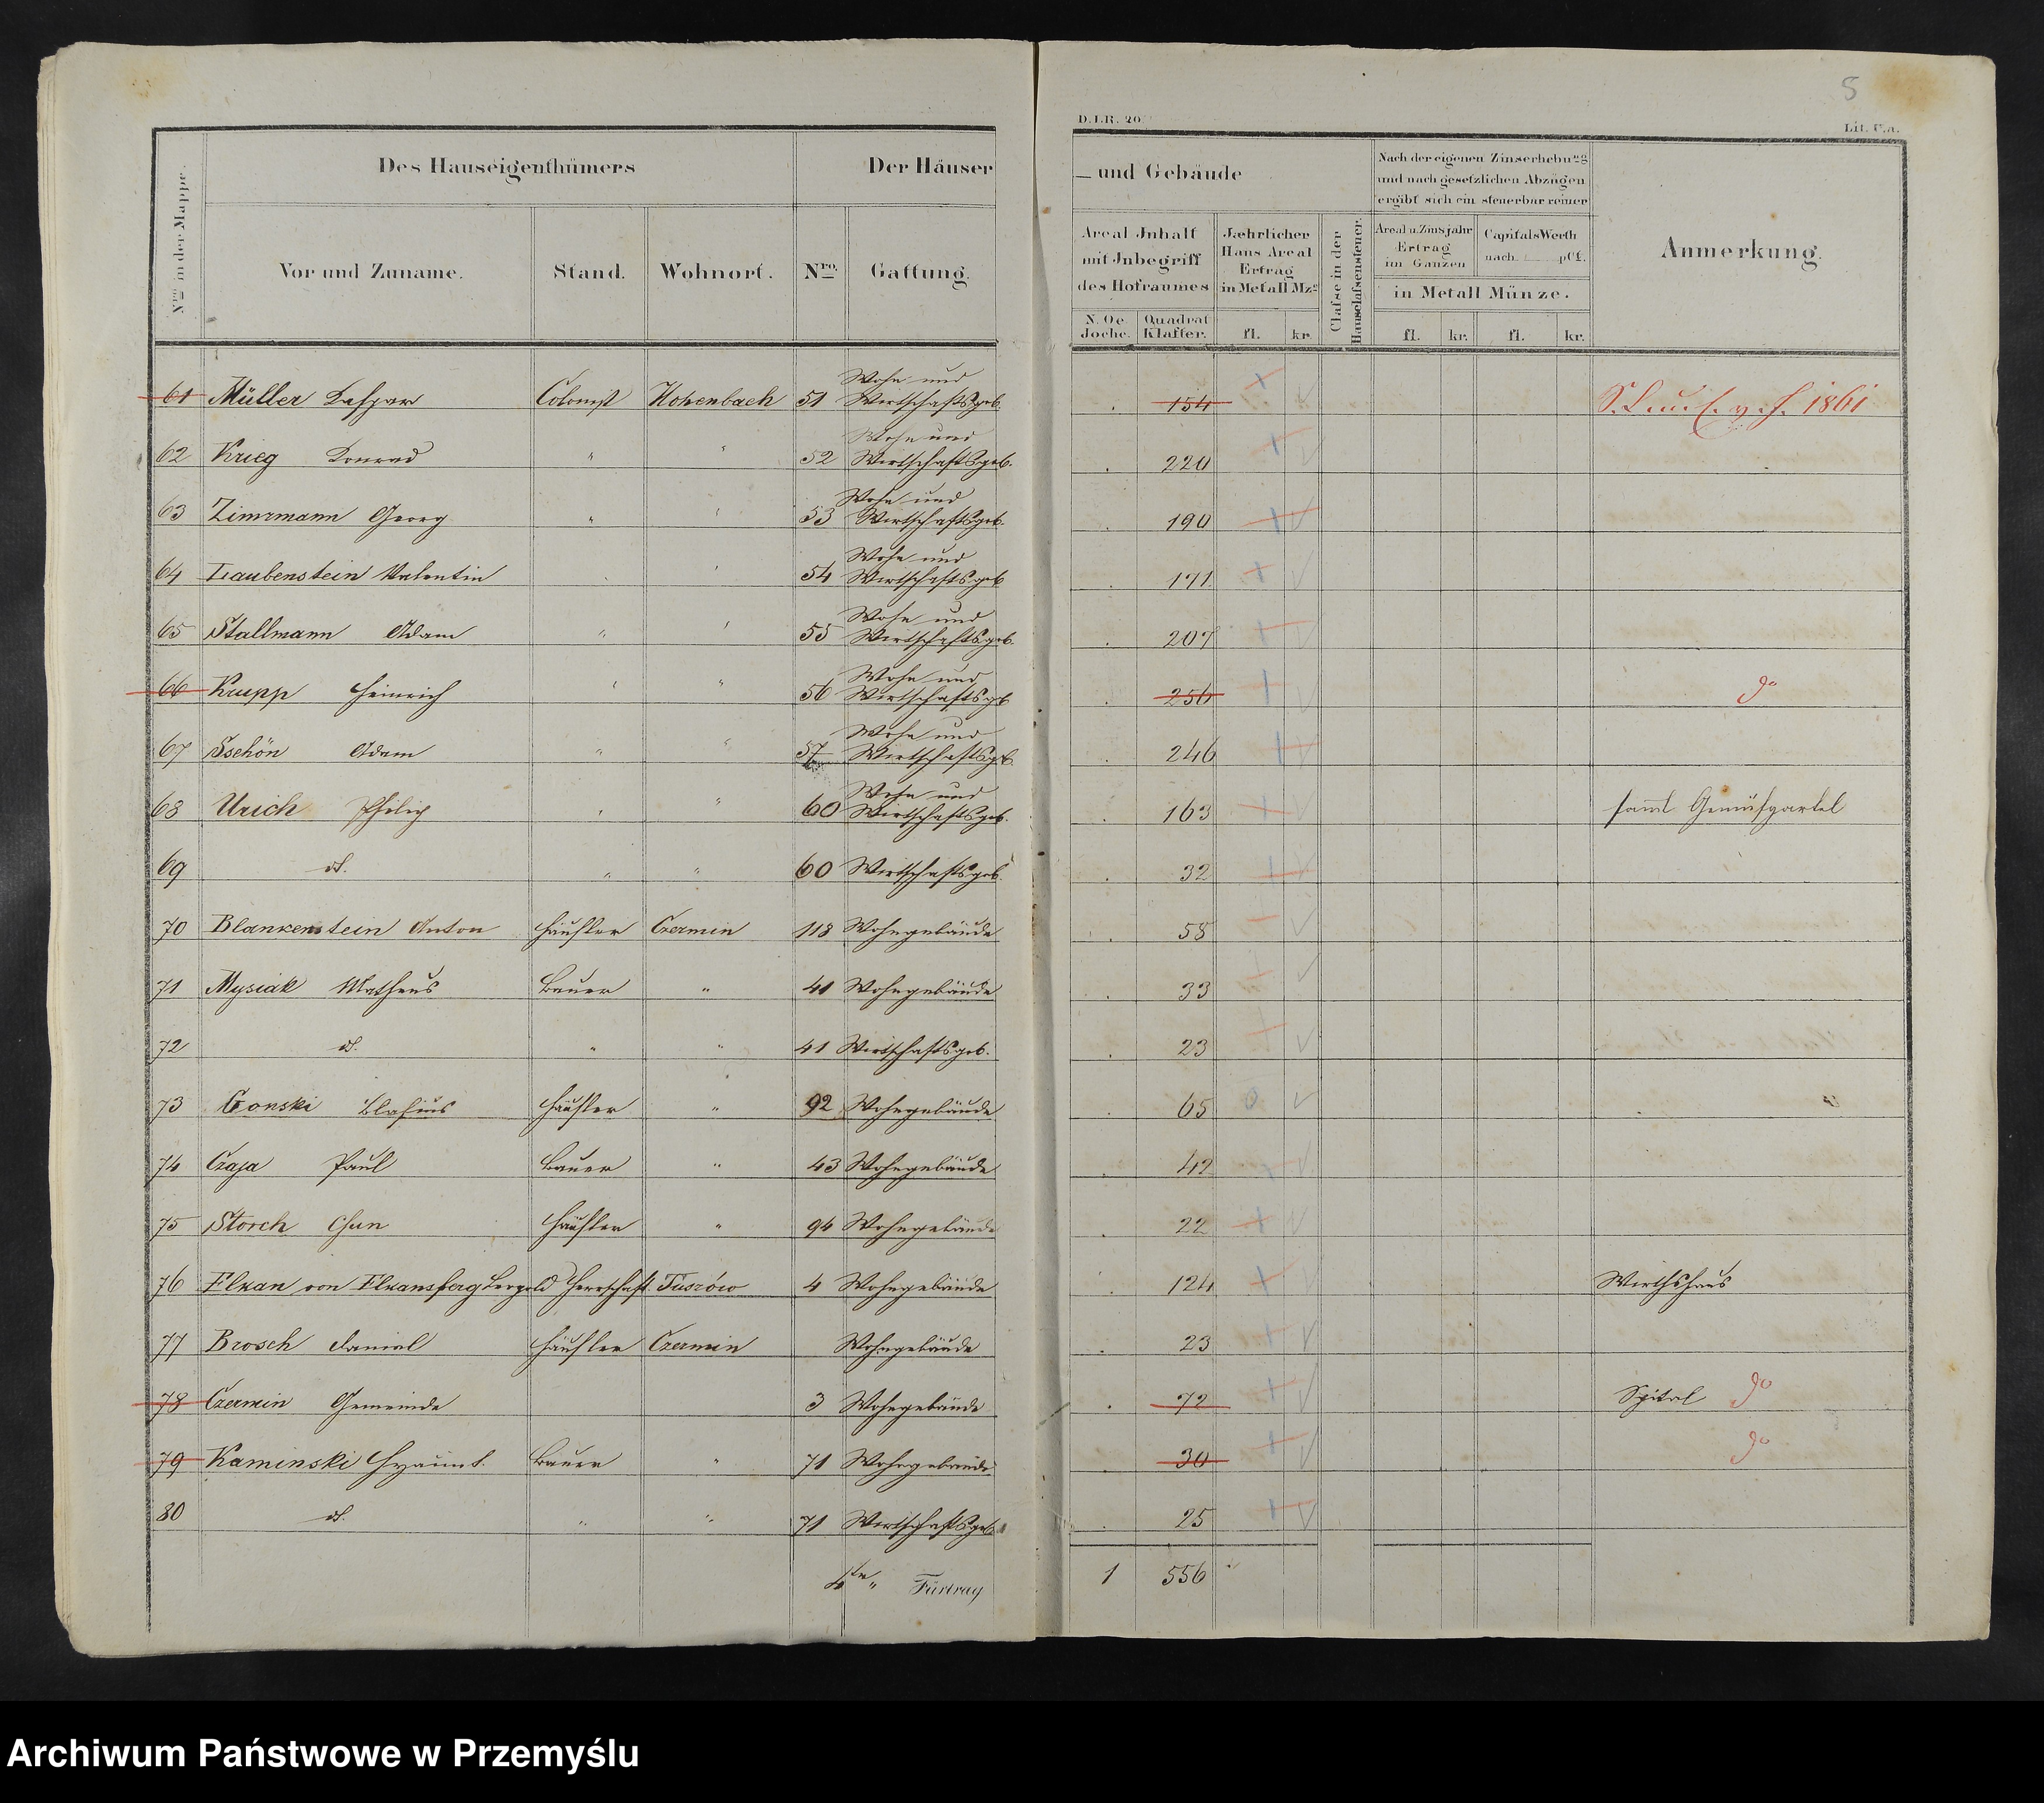 5
D.I.R. 20
Lit. C.a.
Nro in der Mappe.
Des Hauseigenthümers
Der Häuser
und Gebäude
Nach der eigenen Zinserhebung
und nach gesetzlichen Abzügen
ergibt sich ein steuerbar reiner
Anmerkung.
Vor und Zuname.
Stand.
Wohnort.
Nro.
Gattung.
Areal Inhalt
mit Inbegriff
des Hofraumes
Jæhrlicher
Haus Areal
Ertrag
in Metall Mze
Classe in der
Hausclassensteuer.
Areal u. Zinsjahr
Ertrag
im Ganzen
Capitals Werth
nach pCt.
in Metall Münze.
N. Oe.
Joche.
Quadrat
Klafter.
fl. kr. fl. kr. fl. kr.
61 Müller Caspar Colonist Hohenbach 51 Wohn und Wirtschaftsgeb. 154 1861
62 Krieg Konrad " " 52 Wohn und Wirtschaftsgeb. 220
63 Zimrmann Georg " " 53 Wohn und Wirtschaftsgeb. 190
64 Laubenstein Valentin " " 54 Wohn und Wirtschaftsgeb 171
65 Stallmann Adam " " 55 Wohn und Wirtschaftsgeb. 207
66 Krupp Heinrich " " 56 Wohn und Wirtschaftsgb 256 do
67 Sschön Adam " " 57 Wohn und Wirtschaftsgeb. 246
68 Urich Philip " " 60 Wohn und Wirtschaftsgeb. 163 samt Gemüsgartel
69 dt. " " 60 Wirtschaftsgeb. 32
70 Blankenstein Anton Häusler Czermin 118 Wohngebäude 58
71 Mysiak Matheus Bauer " 41 Wohngebäude 33
72 dt. " " 41 Wirtschaftsgeb. 23
73 Gonski Blasius Häusler " 92 Wohngebäude 65
74 Czaja Paul Bauer " 43 Wohngebäude 42
75 Storch Chun Häusler " 94 Wohngebäude 22
76 Elkan von Elkansberg Leopold Herrschaft Tuszów 4 Wohngebäude 124 Wirthshaus
77 Brosch Daniel Häusler Czermin Wohngebäude 23
78 Czermin Gemeinde 3 Wohngebäude 72 Spital do
79 Kaminski Hyacint. Bauer " 71 Wohngebäude 30 do
80 dt. " " 71 Wirtschaftsgeb. 25
4te " Fürtrag 1 556
Archiwum Państwowe w Przemyślu